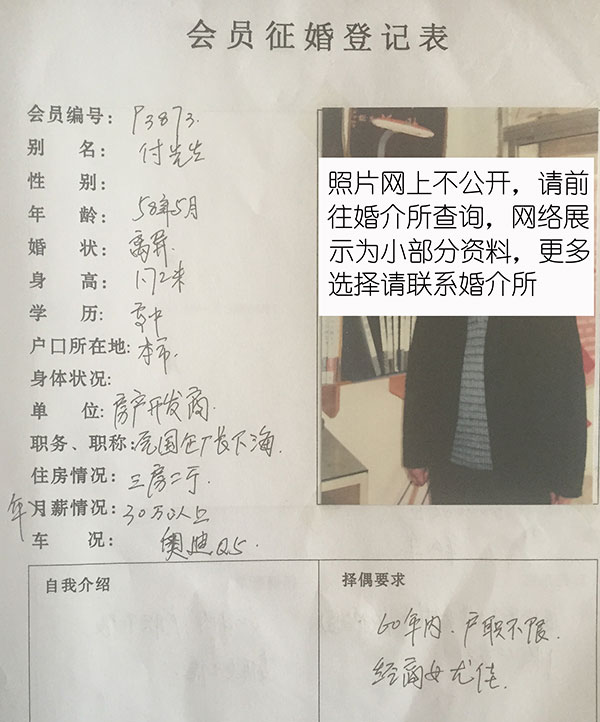 会员征婚登记表
会员编号: P3873.
别 名: 付先生
性 别:
年 龄: 58年5月
婚 状: 离异.
身 高: 1.72米
学 历: 高中
户口所在地: 本市.
身体状况:
单 位: 房产开发商.
职务、职称: 原国企厂长下海.
住房情况: 三房二厅.
年 月薪情况: 30万以上
车 况: 奥迪Q5.
照片网上不公开，请前
往婚介所查询，网络展
示为小部分资料，更多
选择请联系婚介所
自我介绍
择偶要求
60年内、户职不限.
经商女尤佳.